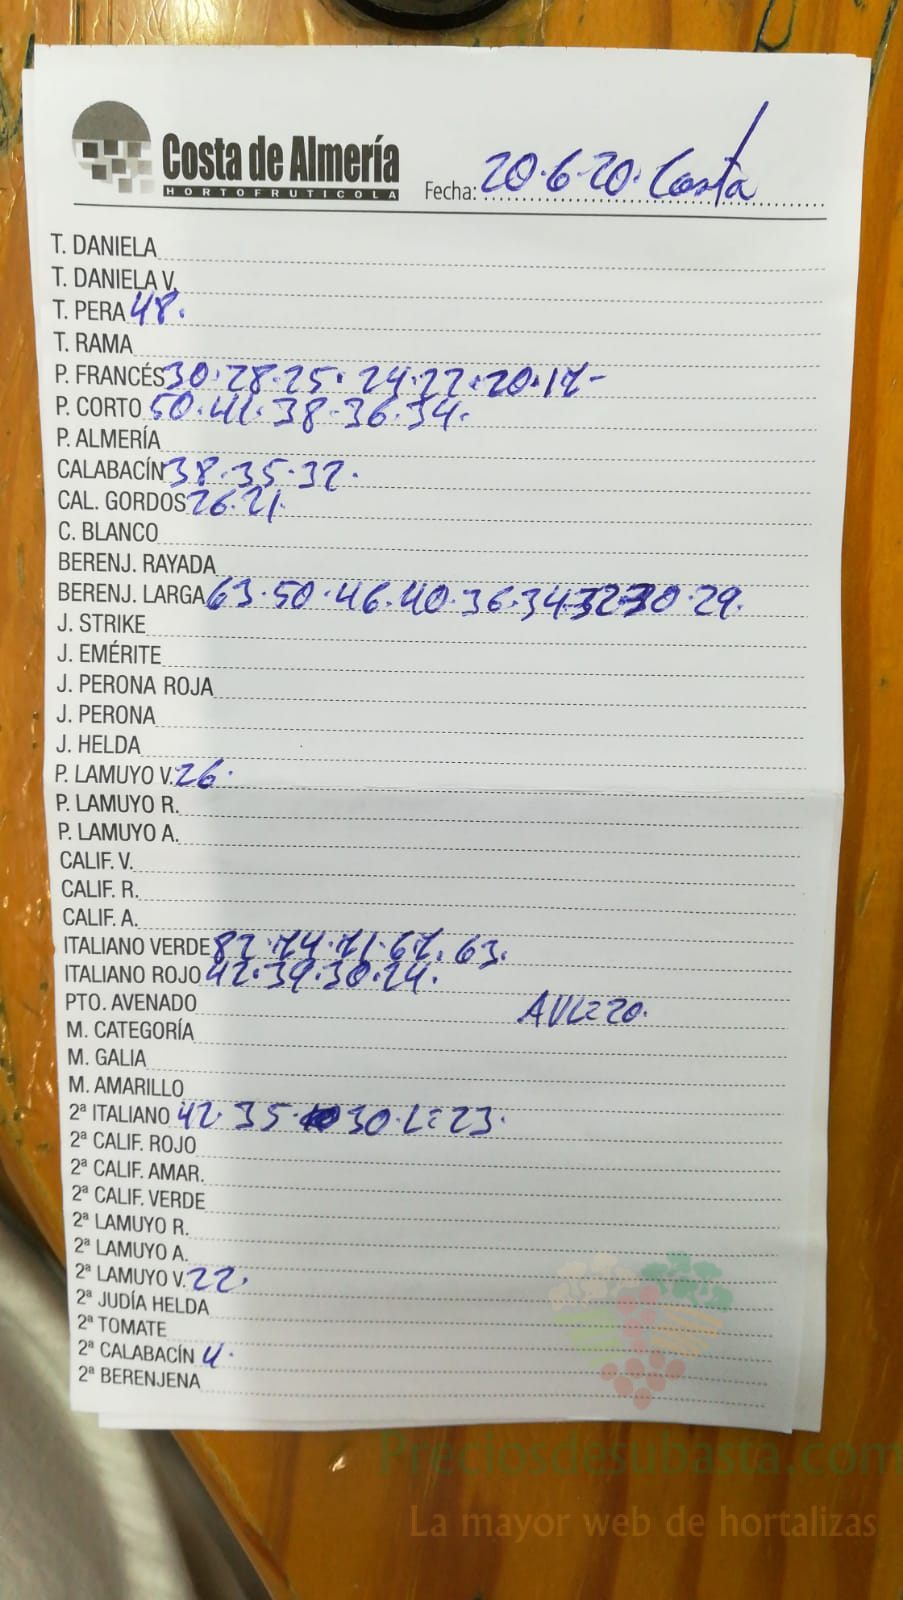 Costa de Almería
HORTOFRUTICOLA
Fecha: 20.6.20. Costa
T. DANIELA
T. DANIELA V.
T. PERA 48.
T. RAMA
P. FRANCÉS 30.28.25. 24.22.20.17-
P. CORTO 50.41.38-36.34.
P. ALMERÍA
CALABACÍN 38.35.32.
CAL. GORDOS 26.21.
C. BLANCO
BERENJ. RAYADA
BERENJ. LARGA 63.50.46.40.36.34-32-30.29.
J. STRIKE
J. EMÉRITE
J. PERONA ROJA
J. PERONA
J. HELDA
P. LAMUYO V. 26.
P. LAMUYO R.
P. LAMUYO A.
CALIF. V.
CALIF. R.
CALIF. A.
ITALIANO VERDE 82.74.71.67.63.
ITALIANO ROJO 42.39.30.24.
PTO. AVENADO
M. CATEGORÍA
M. GALIA
M. AMARILLO
2ª ITALIANO 42.35. 30.L=23.
2ª CALIF. ROJO
2ª CALIF. AMAR.
2ª CALIF. VERDE
2ª LAMUYO R.
2ª LAMUYO A.
2ª LAMUYO V. 22.
2ª JUDÍA HELDA
2ª TOMATE
2ª CALABACÍN
2ª BERENJENA
Preciosdesubasta.com
La mayor web de hortalizas